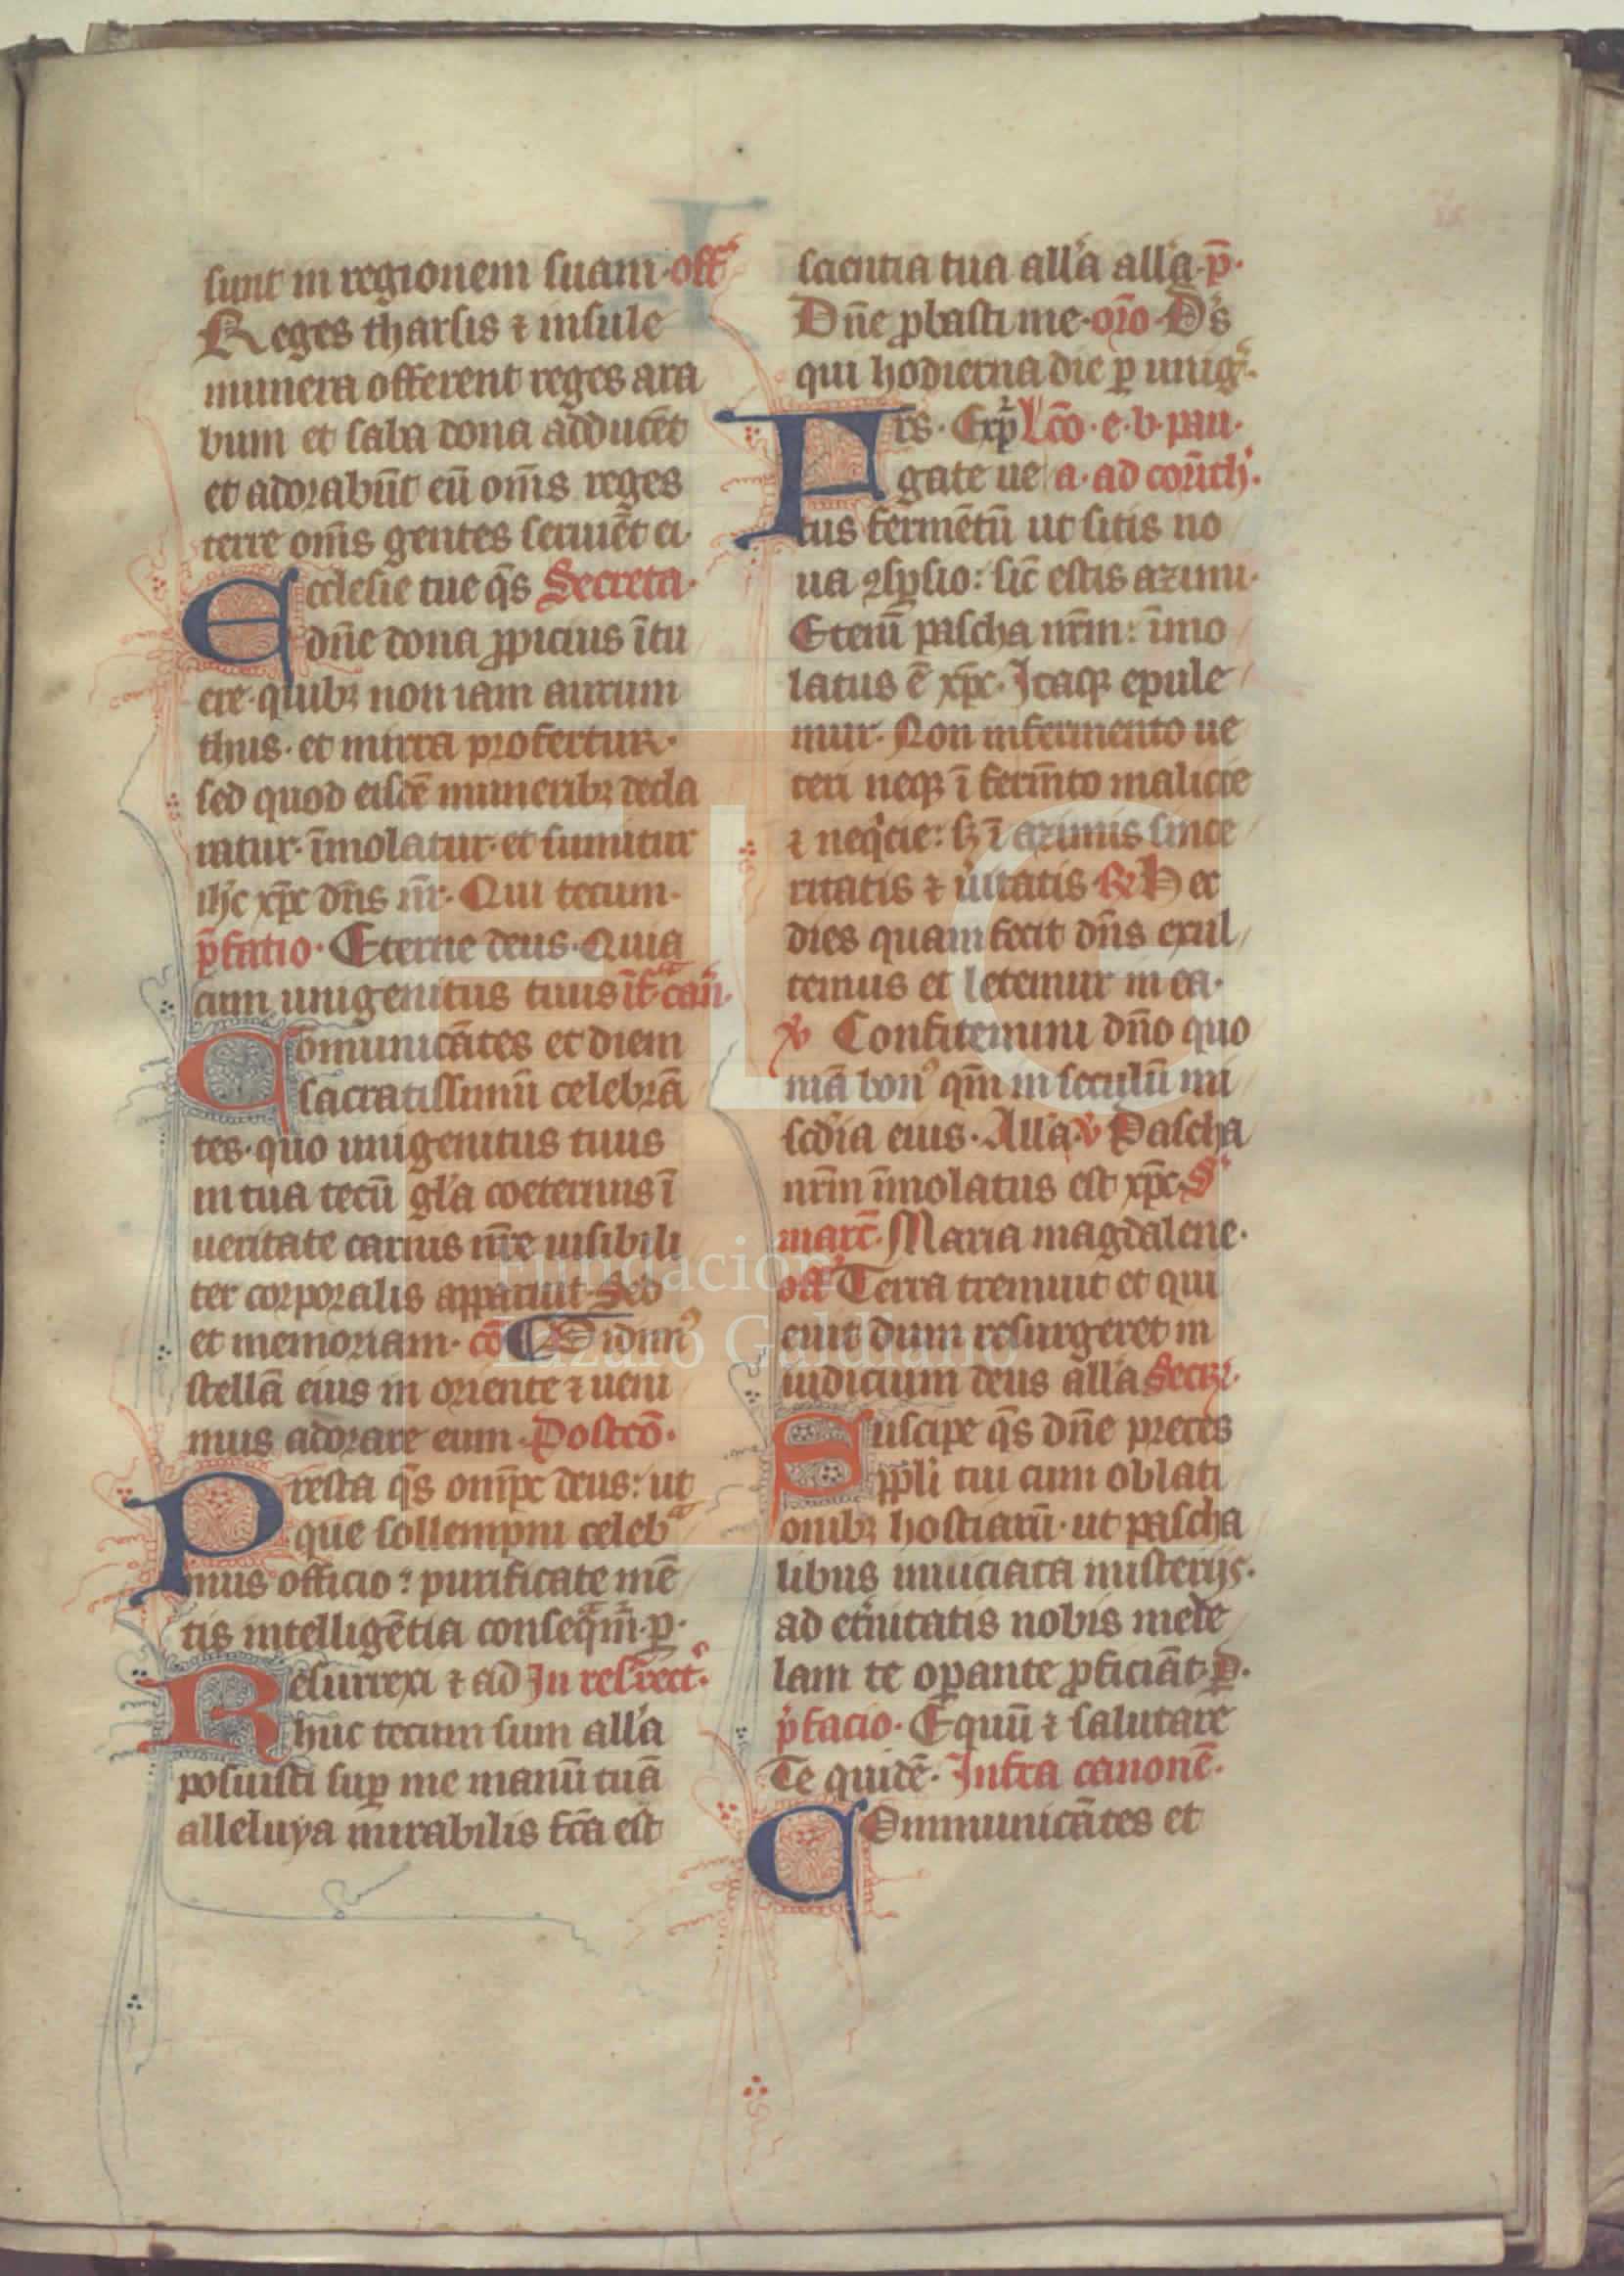 sunt in regionem suam· off̃
Reges tharsis ⁊ insule
munera offerent reges ara
bum et saba dona adducẽt
et adorabũt eũ om̃s reges
terre om̃s gentes seruiẽt ei·
Ecclesie tue q̃s Secreta·
dñe dona ꝓpicius ĩtu
ere· quibꝫ non iam aurum
thus· et mirra profertur·
sed quod eisdẽ muneribꝫ decla
ratur· ĩmolatur· et sumitur
ih̃c xp̃c dñs ñr· Qui tecum·
p̃fatio· Eterne deus· Quia
cum unigenitus tuus ĩf̃ cañ·
Comunicãtes et diem
sacratissimũ celebrã
tes· quo unigenitus tuus
in tua tecũ gl'a coeternus ĩ
ueritate carnis nr̃e uisibili
ter corporalis apparuit· Sed
et memoriam· cõ Vidimꝰ
stellã eius in oriente ⁊ ueni
mus adorare eum· Postcõ·
Presta q̃s omp̃c deus: ut
que sollempni celebᵃ
mus officio: purificate mẽ
tis intelligẽtia conseq̃m̃· ꝑ·
Resurrexi ⁊ ad In resr̃rect·
huc tecum sum all'a
posuisti suꝑ me manũ tuã
alleluya mirabilis fc̃a est
scientia tua all'a all'a· p̃·
Dñe ꝓbasti me· or̃o· D's
qui hodierna die ꝑ unig·
Fr̃s· Exp̃ Lc̃o· e· b· pau·
gate ue a· ad corĩth·
tus fermẽtũ ut sitis no
ua ꝯsꝑsio: sic̃ estis azimi·
Etenĩ pascha nr̃m: ĩmo
latus ẽ xp̃c· Itaqꝫ epule
mur· Non in fermento ue
teri neqꝫ ĩ ferm̃to malicie
⁊ neq'cie: sꝫ ĩ azimis since
ritatis ⁊ u'itatis ℟ Hec
dies quam fecit dñs exul
temus et letemur in ea·
℣ Confitemini dño quo
niã bonꝰ qm̃ in seculũ mi
sc̃dia eius· All'a ℣ Pascha
nr̃m ĩmolatus est xp̃c· S'
marc̃· Maria magdalene·
off̃ Terra tremuit et qui
euit dum resurgeret in
iudicium deus all'a Secr̃·
Suscipe q̃s dñe preces
pp̃li tui cum oblati
onibꝫ hostiarũ· ut pascha
libus iniciata misterijs·
ad et'nitatis nobis mede
lam te oꝑante ꝓficiãt· ꝑ·
p̃facio· Equũ ⁊ salutare
Te quidẽ· Infra canonẽ·
Communicãtes et
Fundación
Lázaro Galdiano